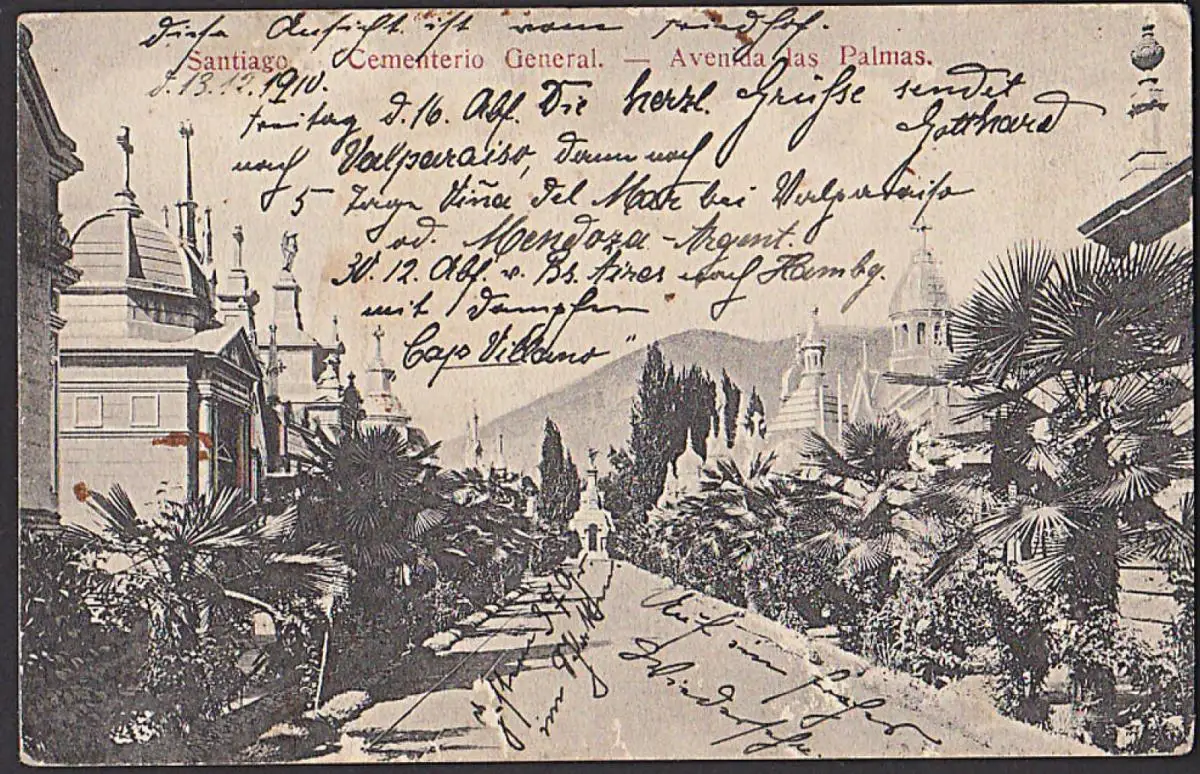 Diese Ansicht ist vom Friedhof.
Santiago Cementerio General. — Avenida las Palmas.
d. 13.12.1910.
Die herzl. Grüße sendet
Gotthard
Freitag d. 16. Abf.
nach Valparaiso, dann nach
5 Tage Viña del Mar bei Valparaiso
od. Mendoza - Argent.
30. 12. Abf. v. Bs. Aires nach Hambg.
mit Dampfer
Cap Villano"
im
Auf ein frohes
Wiedersehn